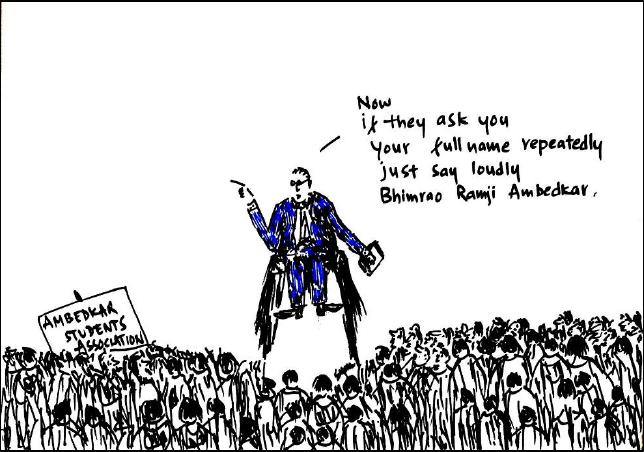 Now
if they ask you
your full name repeatedly
just say loudly
Bhimrao Ramji Ambedkar.
AMBEDKAR
STUDENTS
ASSOCIATION